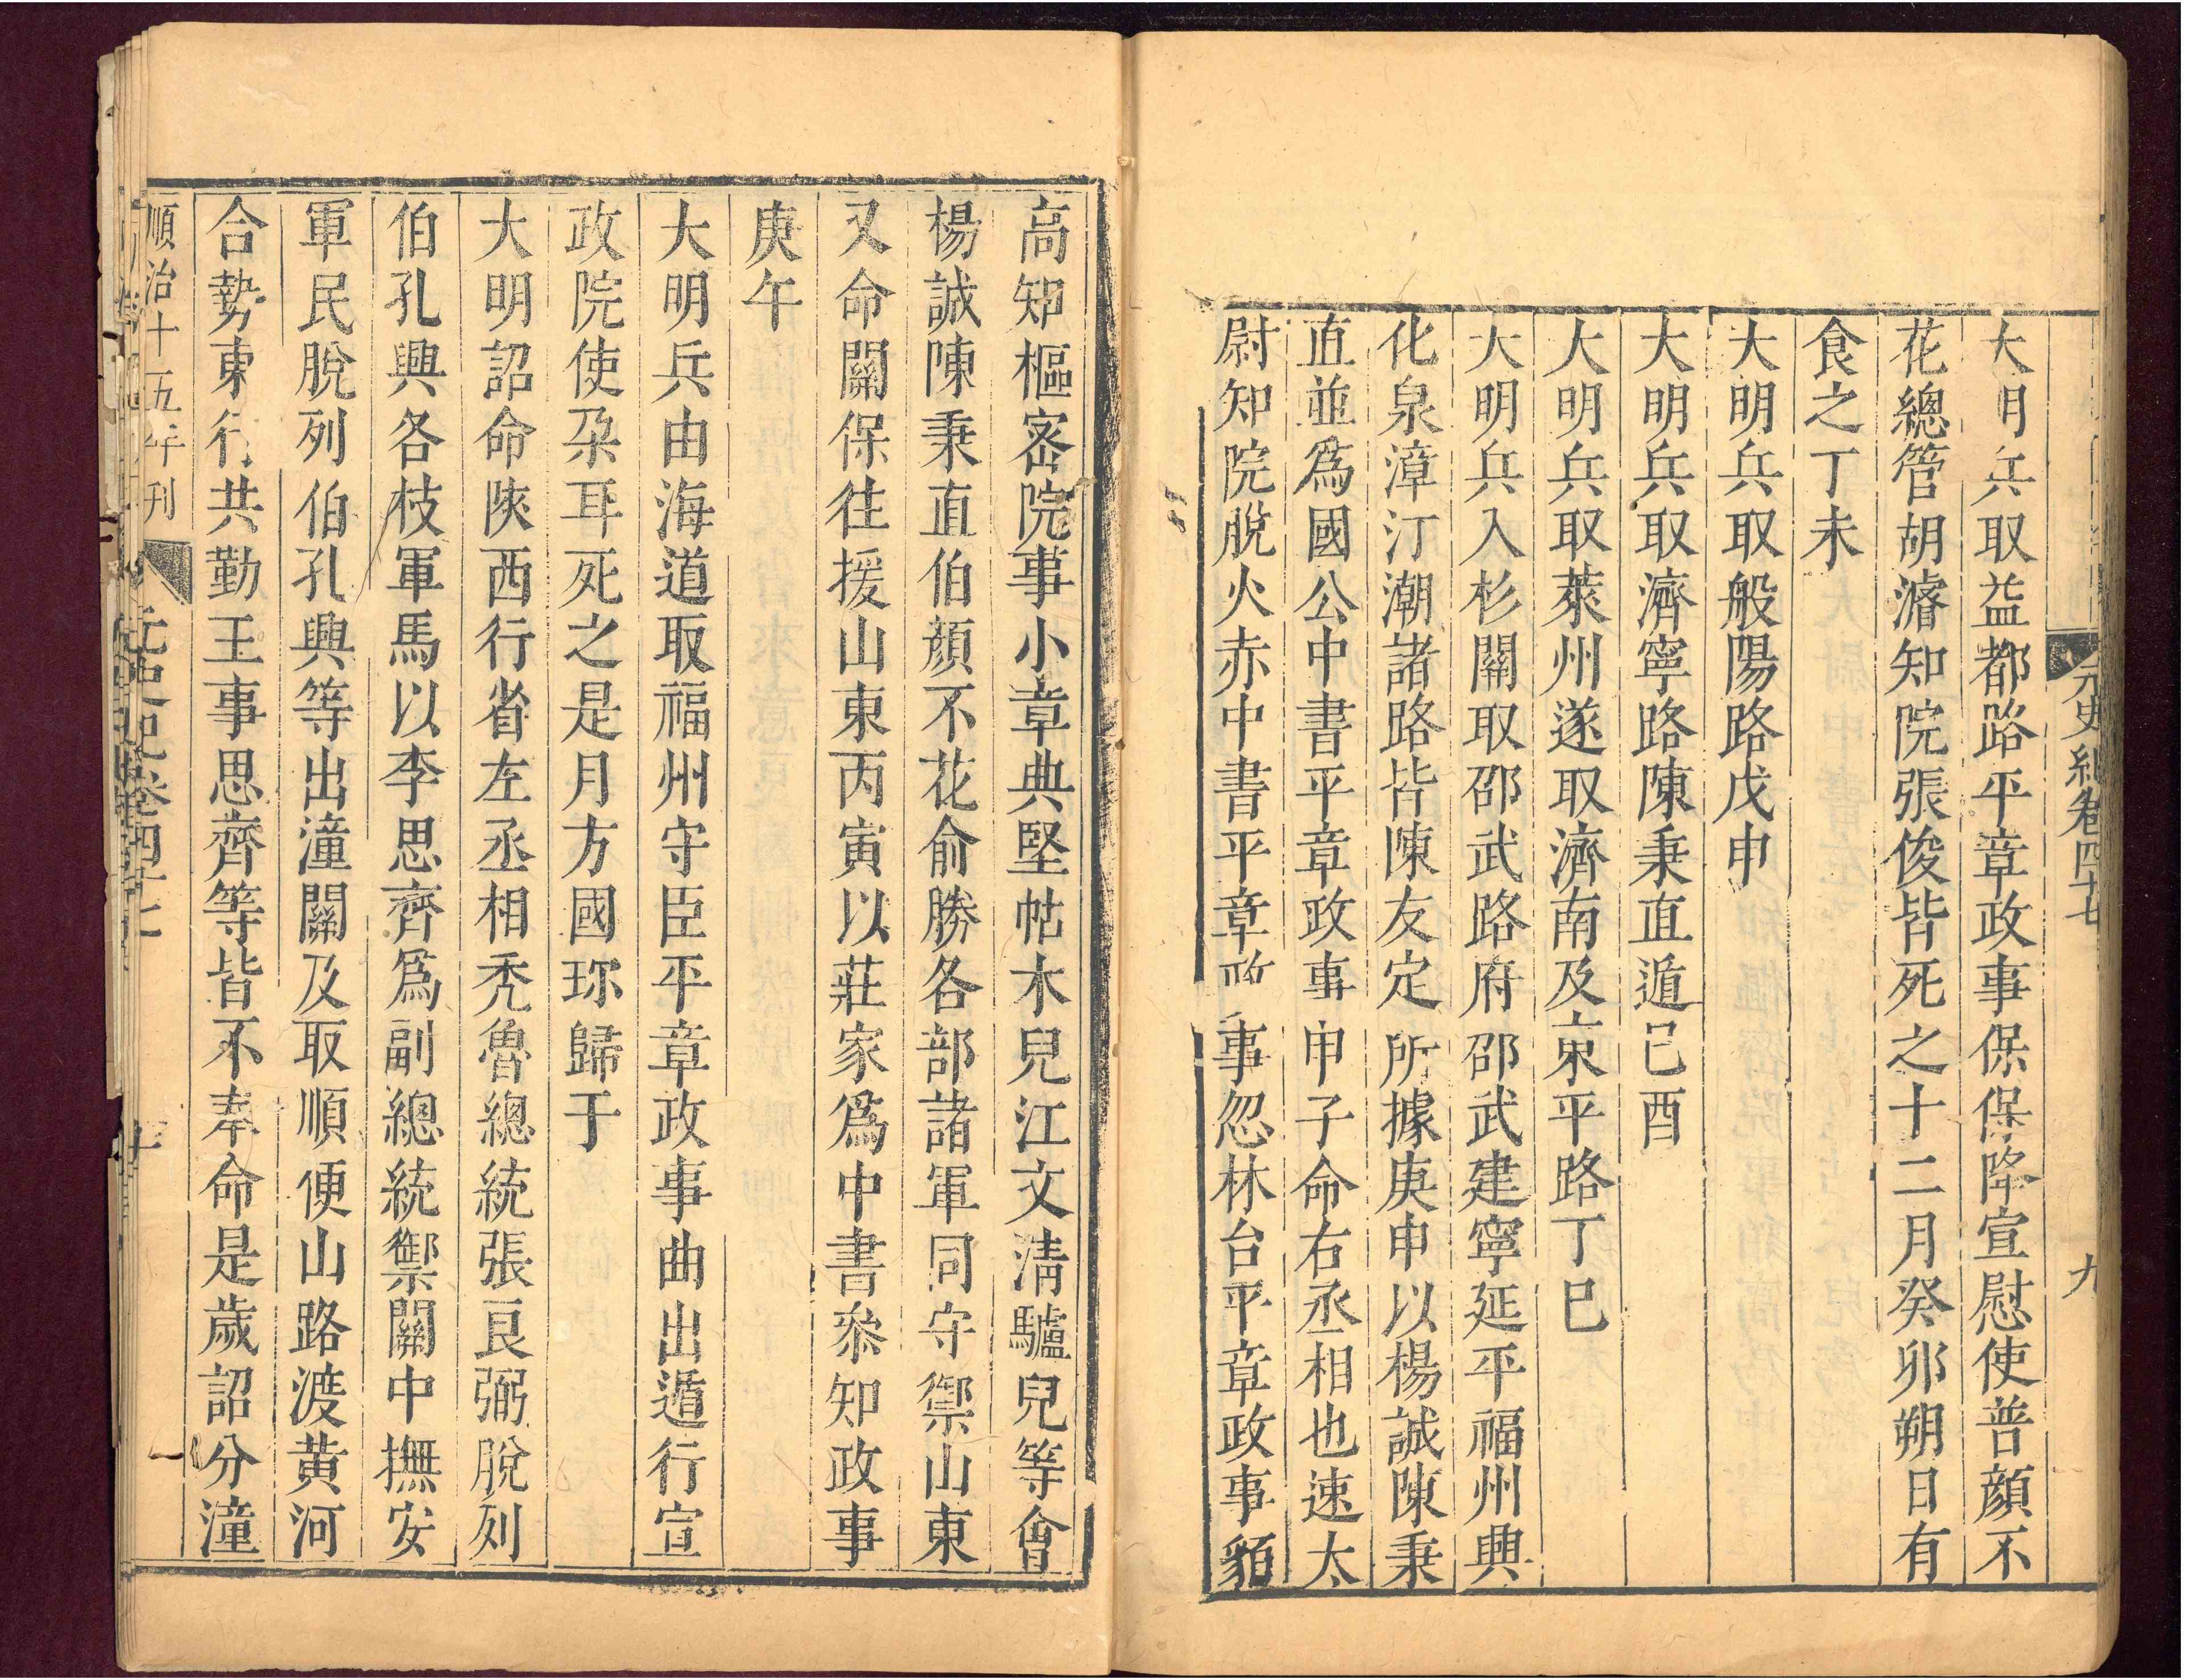 元史紀卷四十七
九
大明兵取益都路平章政事保保降宣慰使普顔不
花總管胡濬知院張俊皆死之十二月癸卯朔日有
食之丁未
大明兵取般陽路戊申
大明兵取濟寧路陳秉直遁己酉
大明兵取萊州遂取濟南及東平路丁巳
大明兵入杉關取邵武路府邵武建寧延平福州興
化泉漳汀潮諸路皆陳友定所據庚申以楊誠陳秉
直並爲國公中書平章政事甲子命右丞相也速太
尉知院脫火赤中書平章政事忽林台平章政事貊
高知樞密院事小章典堅帖木兒江文淸驢兒等會
楊誠陳秉直伯顔不花俞勝各部諸軍同守禦山東
又命關保往援山東丙寅以莊家爲中書叅知政事
庚午
大明兵由海道取福州守臣平章政事曲出遁行宣
政院使朶耳死之是月方國珎歸于
大明詔命陝西行省左丞相禿魯總統張良弼脫列
伯孔興各枝軍馬以李思齊爲副總統禦關中撫安
軍民脫列伯孔興等出潼關及取順便山路渡黄河
合勢東行共勤王事思齊等皆不奉命是歲詔分潼
順治十五年刊